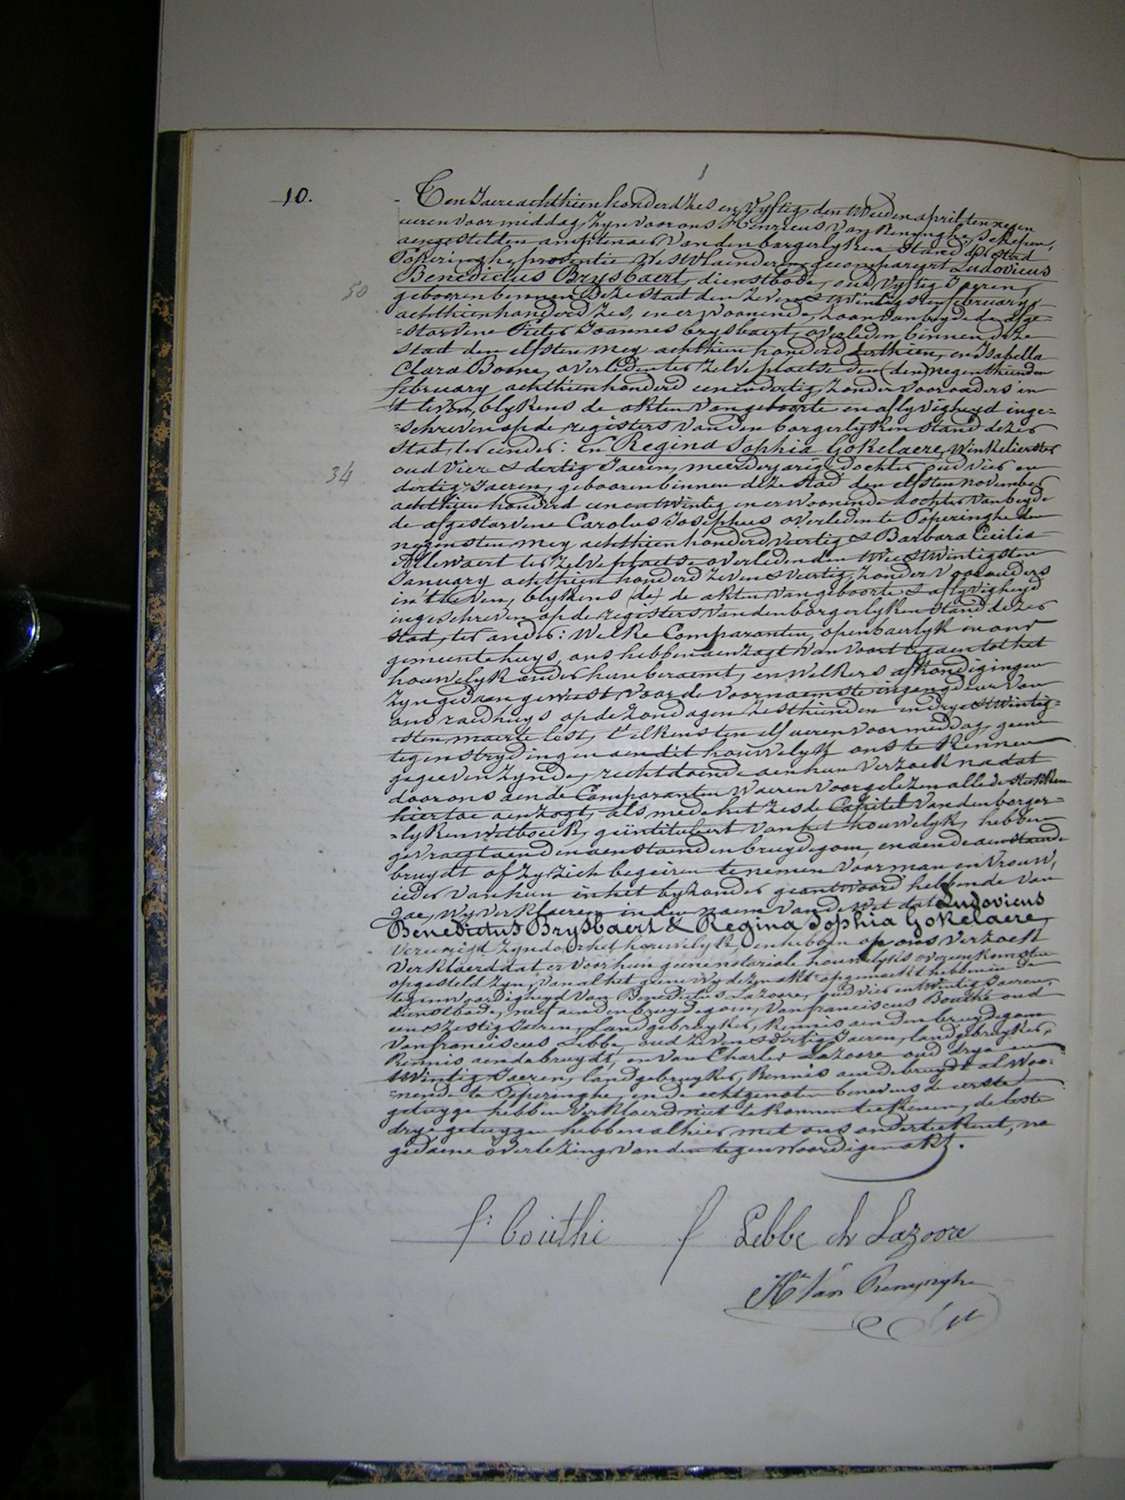 10.
Ten Jaere achthien honderd zes en vyftig, den tweeden april, ten negen
ueren voor middag, zyn voor ons Henricus Van Renynghe, Schepen,
aengestelden amptenaer van den borgerlyken Stand der Stad
Poperinghe, provintie West Vlaenderen, gecompareert Ludovicus
Benedictus Brysbaert, dienstbode, oud vyftig Jaeren,
50
gebooren binnen deze Stad den zeven & twintigsten february
achthien honderd zes, en er woonende, zoon van beyde de afge-
=storvene Pieter Joannes Brysbaert, overleden binnen deze
Stad den elfsten mey achthien honderd derthien, en Isabella
Clara Boone, overleden ter zelve plaetse den negenthienden
february achthien honderd een en dertig, zonder voorouders in
't leven, blykens de akten van geboorte en aflyvigheyd inge-
=schreven op de registers van den borgerlyken stand dezer
Stad, ter eender: En Regina Sophia Gokelaere, Winkelierster
oud vier & dertig Jaeren, meerderjarige dochter, oud vier en
34
dertig Jaeren, gebooren binnen deze Stad den elfsten november
achthien honderd een en twintig en er woonende dochter van beyde
de afgestorvene Carolus Josephus overleden te Poperinghe den
negensten mey achthien honderd veertig & Barbara Cecilia
Allewaert ter zelve plaetse overleden den twee & twintigsten
January achthien honderd zeven & veertig, zonder voorouders
in 't leven, blykens de akten van geboorte & aflyvigheyd
ingeschreven op de registers van den borgerlyken stand dezer
Stad, ter ander: Welke Comparanten, openbaerlyk in ons
gemeentehuys, ons hebben aenzogt van voort te gaen tot het
houwelyk onder hun beraemt, en welkers afkondigingen
zyn gedaen geweest voor de voornaemste ingangdeur van
ons raedhuys op de zondagen zesthienden en drye & twintig-
=sten maerte lest, t'elkens ten elf ueren voormiddag, geene
tegenstrydingen aen dit houwelyk ons te kennen
gegeeven zynde, rechtdoende aen hun verzoek na dat
door ons aen de Comparanten waeren voorgelezen alle de stukken
hiertoe aenzogt, als mede het zesde Capitel van den borger-
=lyken wetboek, geïntituleert van het houwelyk, hebben
gevraegt aen den aenstaenden bruydegom, en aen de aenstaende
bruydt of zy zich begeiren te nemen voor man en vrouw,
ieder van hun in het byzonder geantwoord hebbende van
jae, wy verklaeren in den naem van de wet dat Ludovicus
Benedictus Brysbaert & Regina Sophia Gokelaere,
vereenigd zyn door het houwelyk, en hebben op ons verzoek
verklaerd dat er voor hun geene notariale houwelyks overeenkomsten
opgesteld zyn, van al het geene wy deze akt opgemaekt hebben in de
tegenwoordigheyd van Benedictus Lazoore, oud vier en twintig Jaeren,
dienstbode, nef aen den bruydegom, van franciscus Bouthé oud
een & zestig Jaeren, landgebruyker, kennis aen den bruydegom
van franciscus Lebbe, oud zeven & dertig Jaeren, landgebruyker,
kennis aen de bruydt, en van Charles Lazoore oud drye en
twintig Jaeren, landgebruyker, kennis aen de bruydt al woo-
=nende te Poperinghe, en de echtgenoten benevens de eerste
getuyge hebben verklaerd niet te konnen teekenen, de leste
drye getuygen hebben alhier met ons onderteekent, na
gedaene overlezing van den tegenwoordigen akt.
f: Bouthé f Lebbe ch Lazoore
Hri Van Renynghe